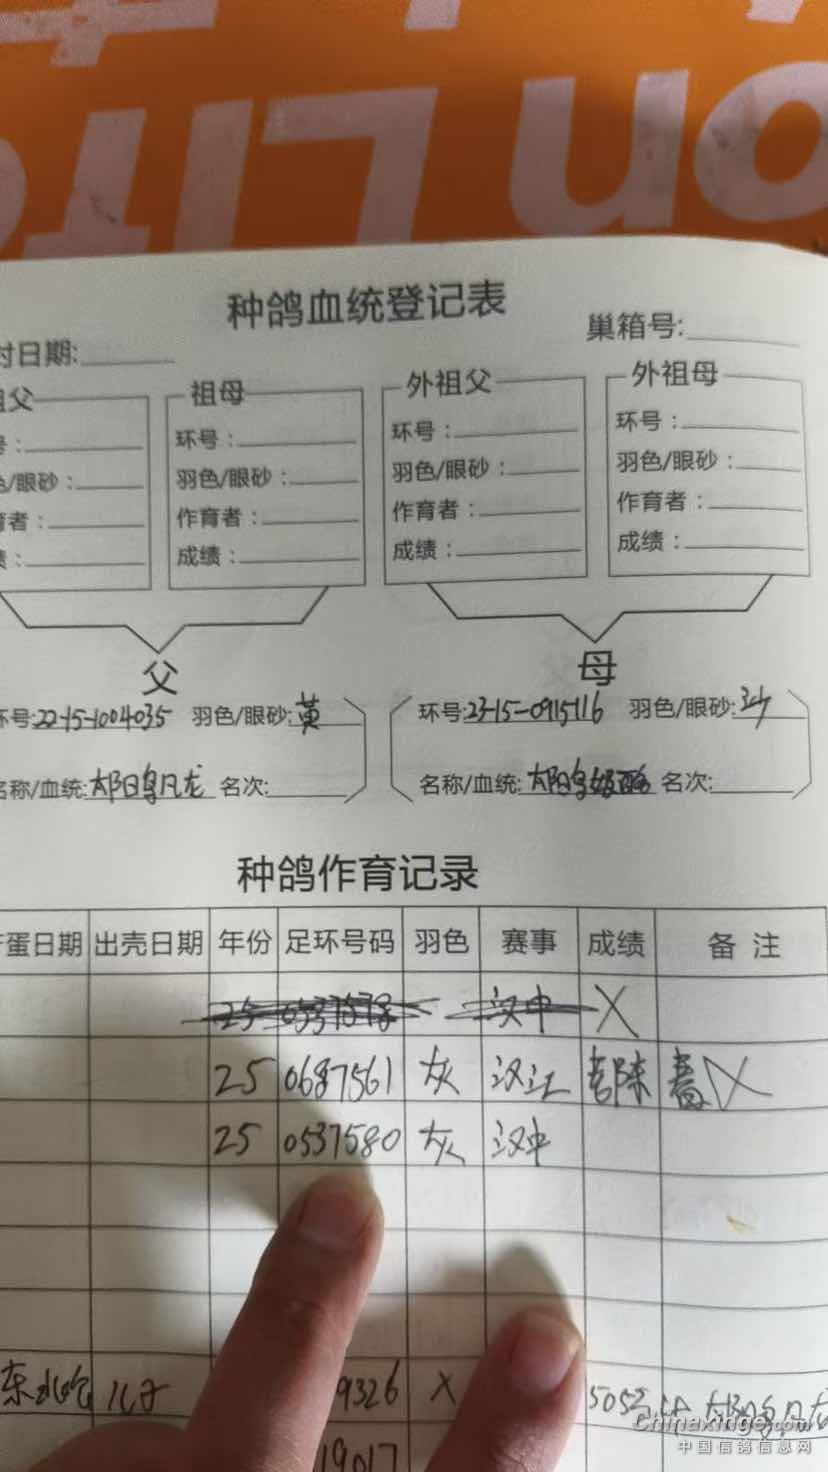 on Lit
种鸽血统登记表
对日期: 巢箱号:
祖父 祖母 外祖父 外祖母
号: 环号: 环号: 环号:
色/眼砂: 羽色/眼砂: 羽色/眼砂: 羽色/眼砂:
育者: 作育者: 作育者: 作育者:
绩: 成绩: 成绩: 成绩:
父 母
环号:22-15-1004035 羽色/眼砂:黄 环号:23-15-0915116 羽色/眼砂:沙
名称/血统: 凡龙 名次: 名称/血统: 名次:
种鸽作育记录
产蛋日期 出壳日期 年份 足环号码 羽色 赛事 成绩 备注
25 汉中 X
25 0687561 灰 汉江 X
25 0537580 灰 汉中
9326 X
19017
Chinaxinge.com
中国信鸽信息网